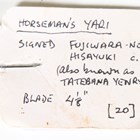 HORSEMAN'S YARI
SIGNED FUJIWARA-NO
HISAYUKI C.
(also known as
TATEBANA YENR
BLADE 4'8"
[20]